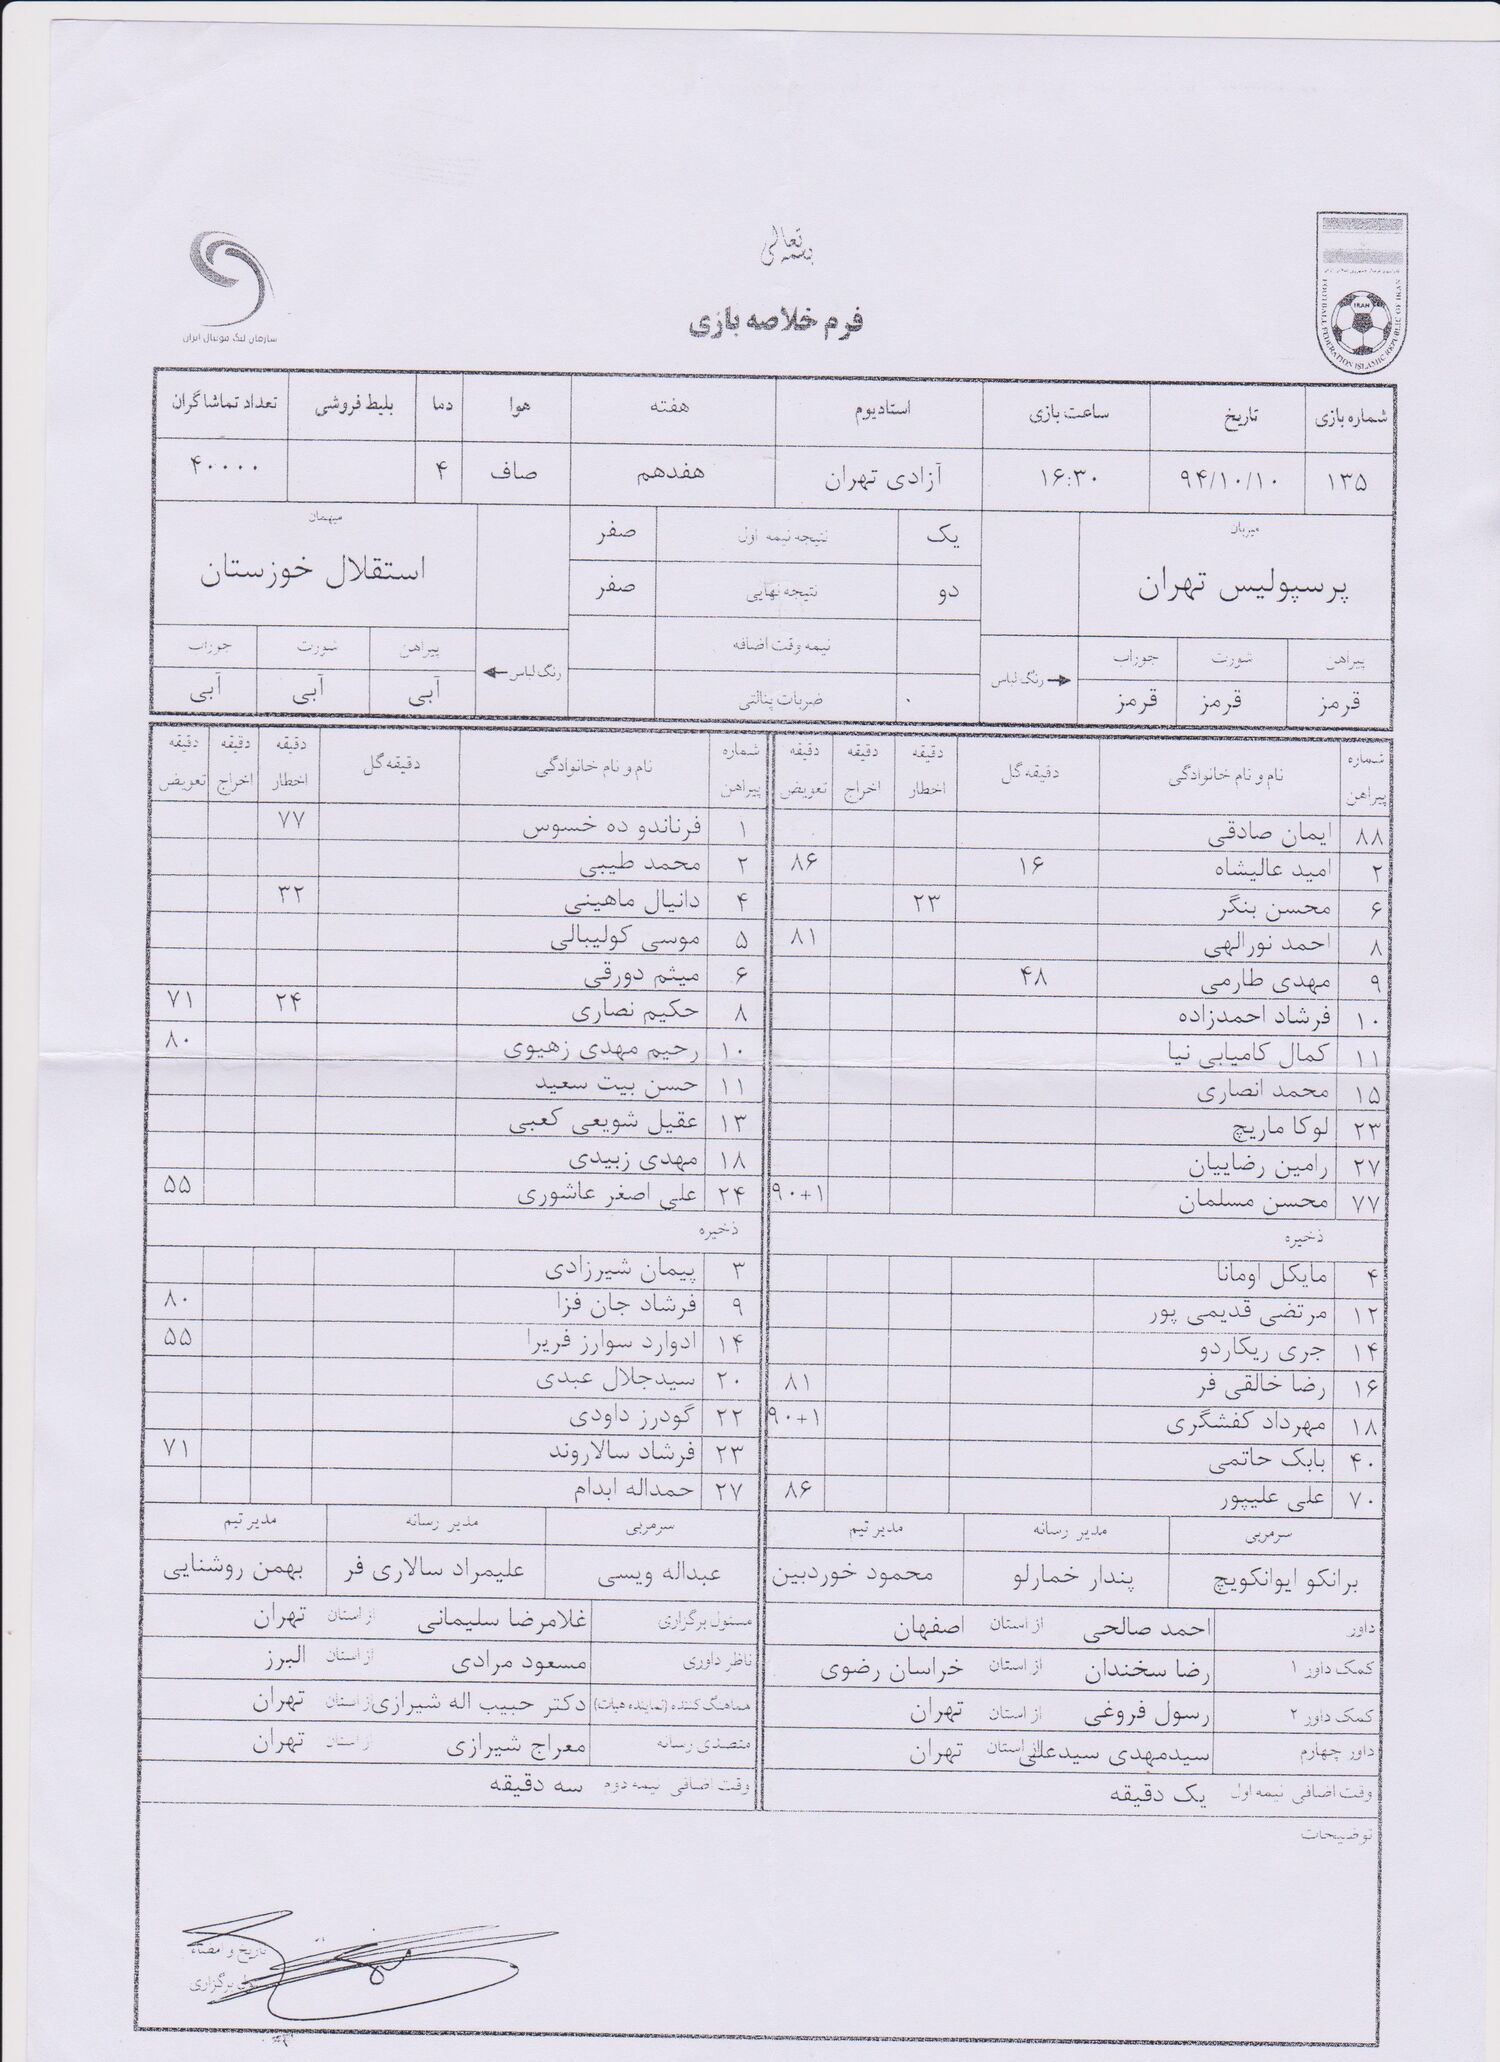 بسمه تعالی
فرم خلاصه بازی
سازمان لیگ فوتبال ایران
IRAN
FOOTBALL FEDERATION ISLAMIC REPUBLIC OF IRAN
شماره بازی تاریخ ساعت بازی استادیوم هفته هوا دما بلیط فروشی تعداد تماشاگران
۱۳۵ ۹۴/۱۰/۱۰ ۱۶:۳۰ آزادی تهران هفدهم صاف ۴ ۴۰۰۰۰
میزبان یک نتیجه نیمه اول صفر میهمان
پرسپولیس تهران دو نتیجه نهایی صفر استقلال خوزستان
نیمه وقت اضافه
پیراهن شورت جوراب رنگ لباس ۰ ضربات پنالتی رنگ لباس پیراهن شورت جوراب
قرمز قرمز قرمز آبی آبی آبی
شماره پیراهن نام و نام خانوادگی دقیقه گل دقیقه اخطار دقیقه اخراج دقیقه تعویض
۸۸ ایمان صادقی
۲ امید عالیشاه ۱۶ ۸۶
۶ محسن بنگر ۲۳
۸ احمد نورالهی ۸۱
۹ مهدی طارمی ۴۸
۱۰ فرشاد احمدزاده
۱۱ کمال کامیابی نیا
۱۵ محمد انصاری
۲۳ لوکا ماریچ
۲۷ رامین رضاییان
۷۷ محسن مسلمان ۹۰+۱
ذخیره
۴ مایکل اومانا
۱۲ مرتضی قدیمی پور
۱۴ جری ریکاردو
۱۶ رضا خالقی فر ۸۱
۱۸ مهرداد کفشگری ۹۰+۱
۴۰ بابک حاتمی
۷۰ علی علیپور ۸۶
سرمربی مدیر رسانه مدیر تیم
برانکو ایوانکویچ پندار خمارلو محمود خوردبین
داور احمد صالحی از استان اصفهان
کمک داور ۱ رضا سخندان از استان خراسان رضوی
کمک داور ۲ رسول فروغی از استان تهران
داور چهارم سیدمهدی سیدعلی از استان تهران
وقت اضافی نیمه اول یک دقیقه
شماره پیراهن نام و نام خانوادگی دقیقه گل دقیقه اخطار دقیقه اخراج دقیقه تعویض
۱ فرناندو ده خسوس ۷۷
۲ محمد طیبی
۴ دانیال ماهینی ۳۲
۵ موسی کولیبالی
۶ میثم دورقی
۸ حکیم نصاری ۲۴ ۷۱
۱۰ رحیم مهدی زهیوی ۸۰
۱۱ حسن بیت سعید
۱۳ عقیل شویعی کعبی
۱۸ مهدی زبیدی
۲۴ علی اصغر عاشوری ۵۵
ذخیره
۳ پیمان شیرزادی
۹ فرشاد جان فزا ۸۰
۱۴ ادوارد سوارز فریرا ۵۵
۲۰ سیدجلال عبدی
۲۲ گودرز داودی
۲۳ فرشاد سالاروند ۷۱
۲۷ حمداله ابدام
سرمربی مدیر رسانه مدیر تیم
عبداله ویسی علیمراد سالاری فر بهمن روشنایی
مسئول برگزاری غلامرضا سلیمانی از استان تهران
ناظر داوری مسعود مرادی از استان البرز
هماهنگ کننده (نماینده هیات) دکتر حبیب اله شیرازی از استان تهران
متصدی رسانه معراج شیرازی از استان تهران
وقت اضافی نیمه دوم سه دقیقه
توضیحات
تاریخ و امضاء
برگزاری